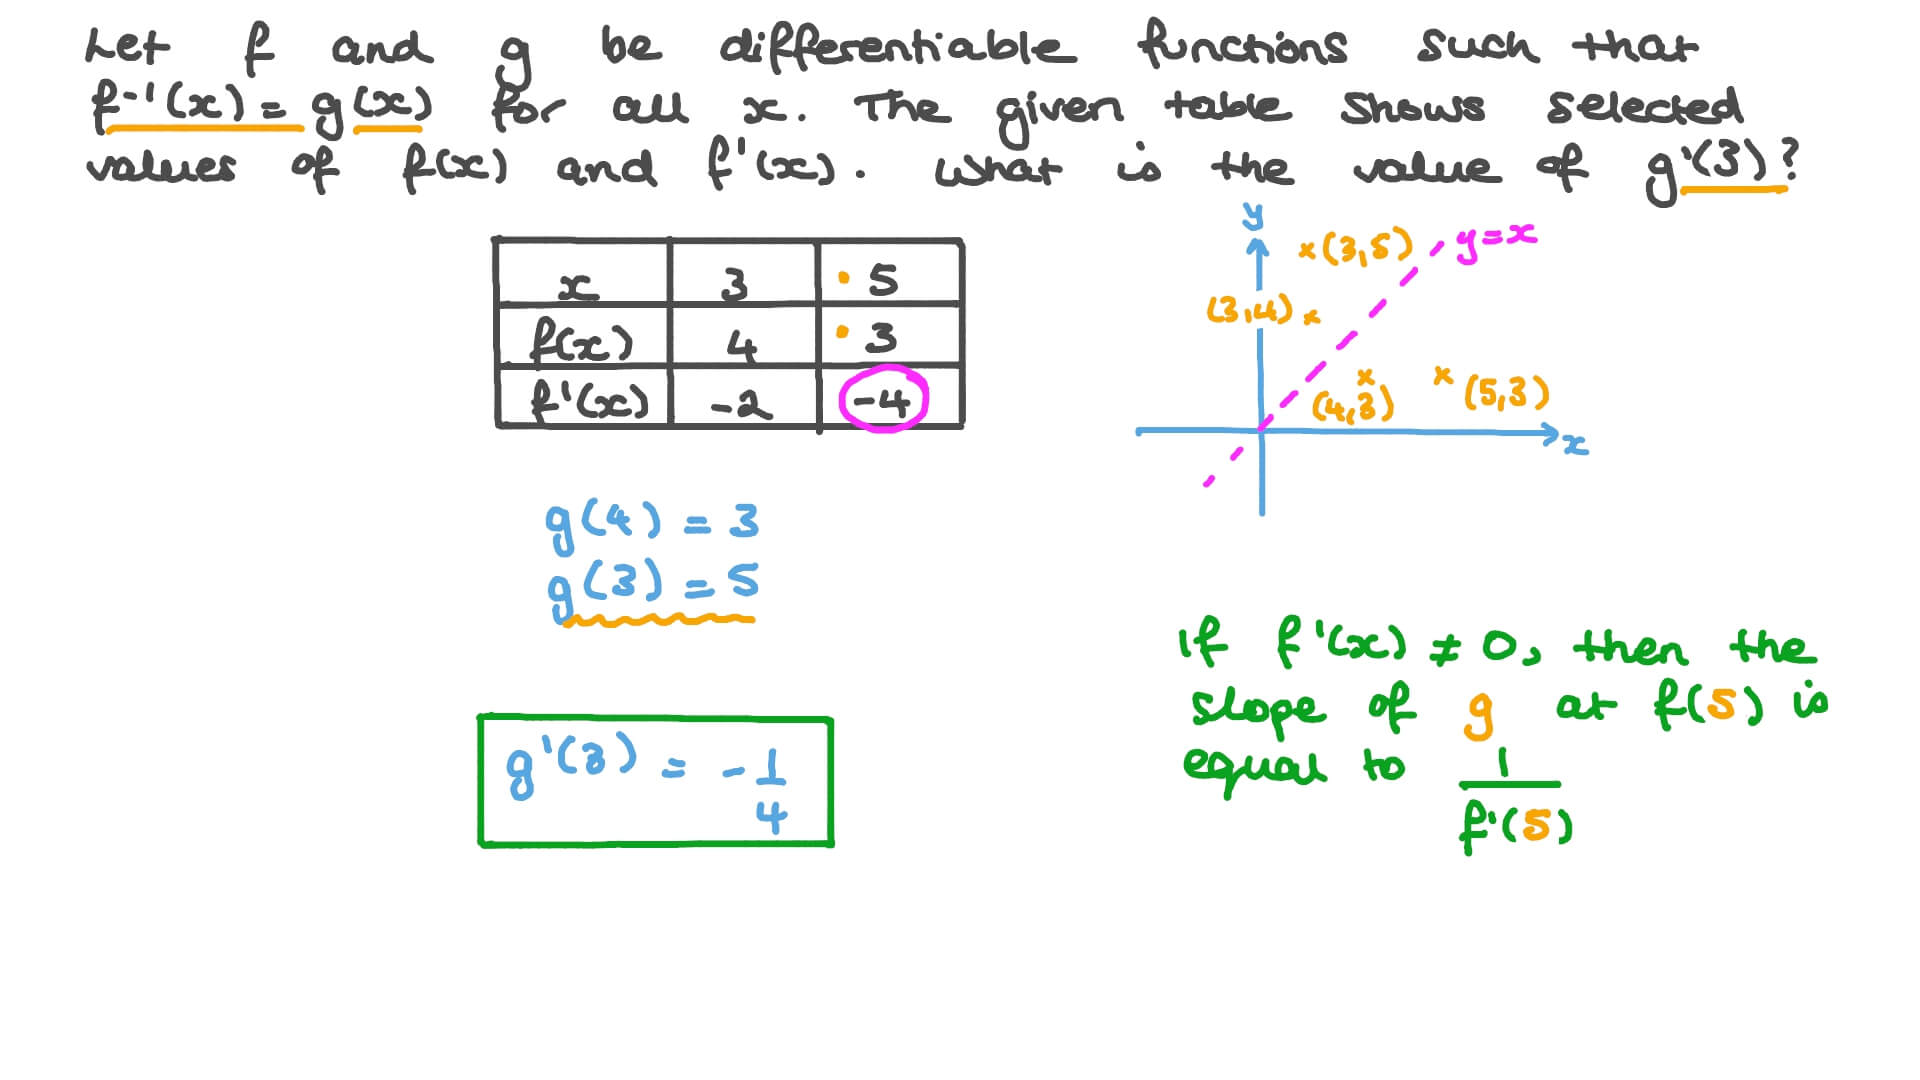 Let f and g be differentiable functions such that
f⁻¹(x) = g(x) for all x. The given table shows selected
values of f(x) and f'(x). What is the value of g'(3)?
x 3 5
f(x) 4 3
f'(x) -2 -4
y
(3,5)
y=x
(3,4)
(4,3)
(5,3)
x
g(4) = 3
g(3) = 5
g'(3) = -1/4
If f'(x) ≠ 0, then the
slope of g at f(5) is
equal to 1/f'(5)